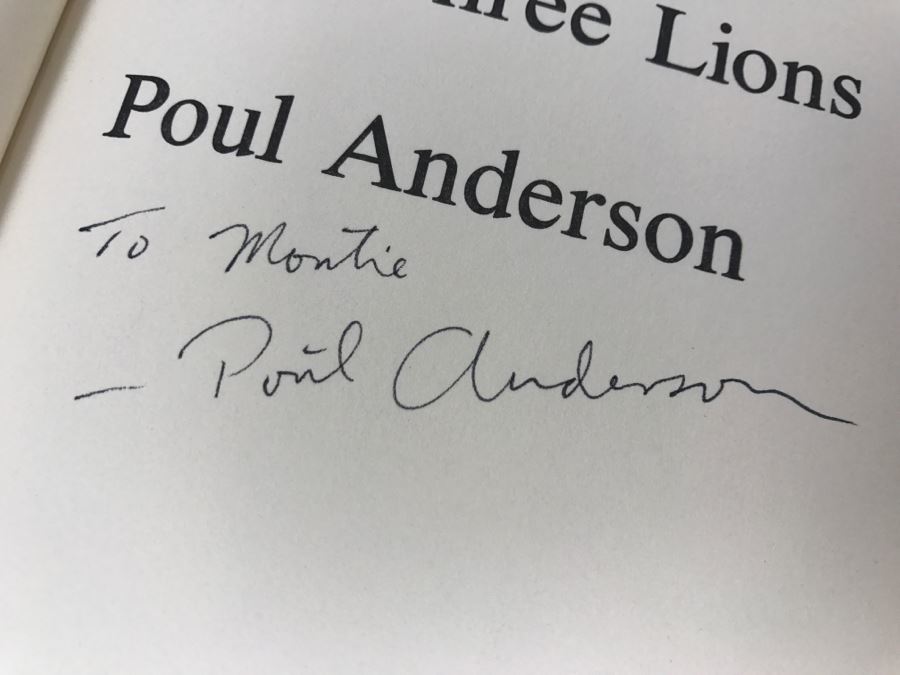 Lions
Poul Anderson
To Montie
— Poul Anderson